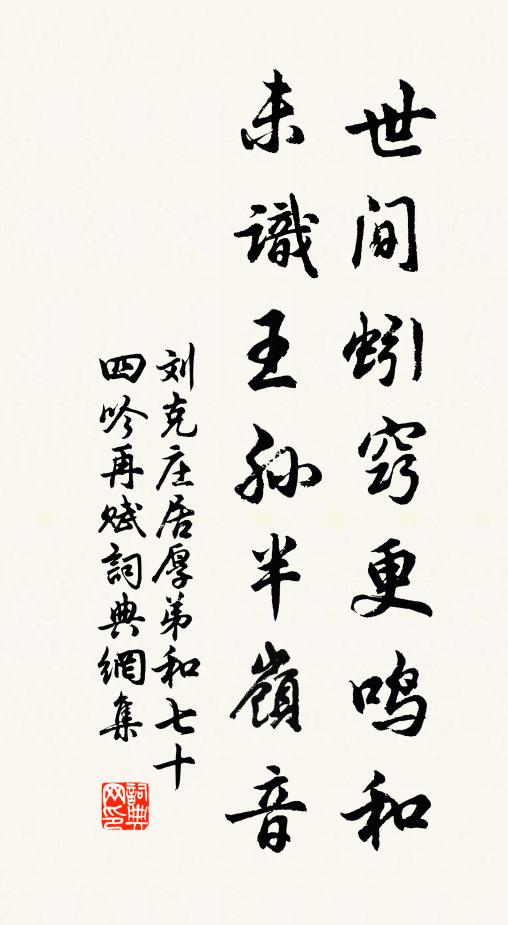 世间蚓窍更鸣和
未識王孙半嶺音
刘克庄居厚弟和七十
四吟再赋詞典網集
詞典
网印